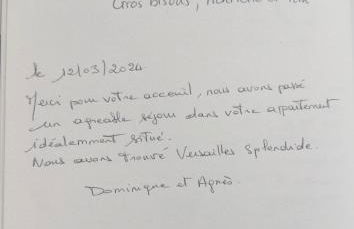 Gros bisous,
le 12/03/2024
Merci pour votre acceuil, nous avons passé
un agréable séjour dans votre appartement
idéalemment situé.
Nous avons trouvé Versailles Splendide.
Dominique et Agnès.